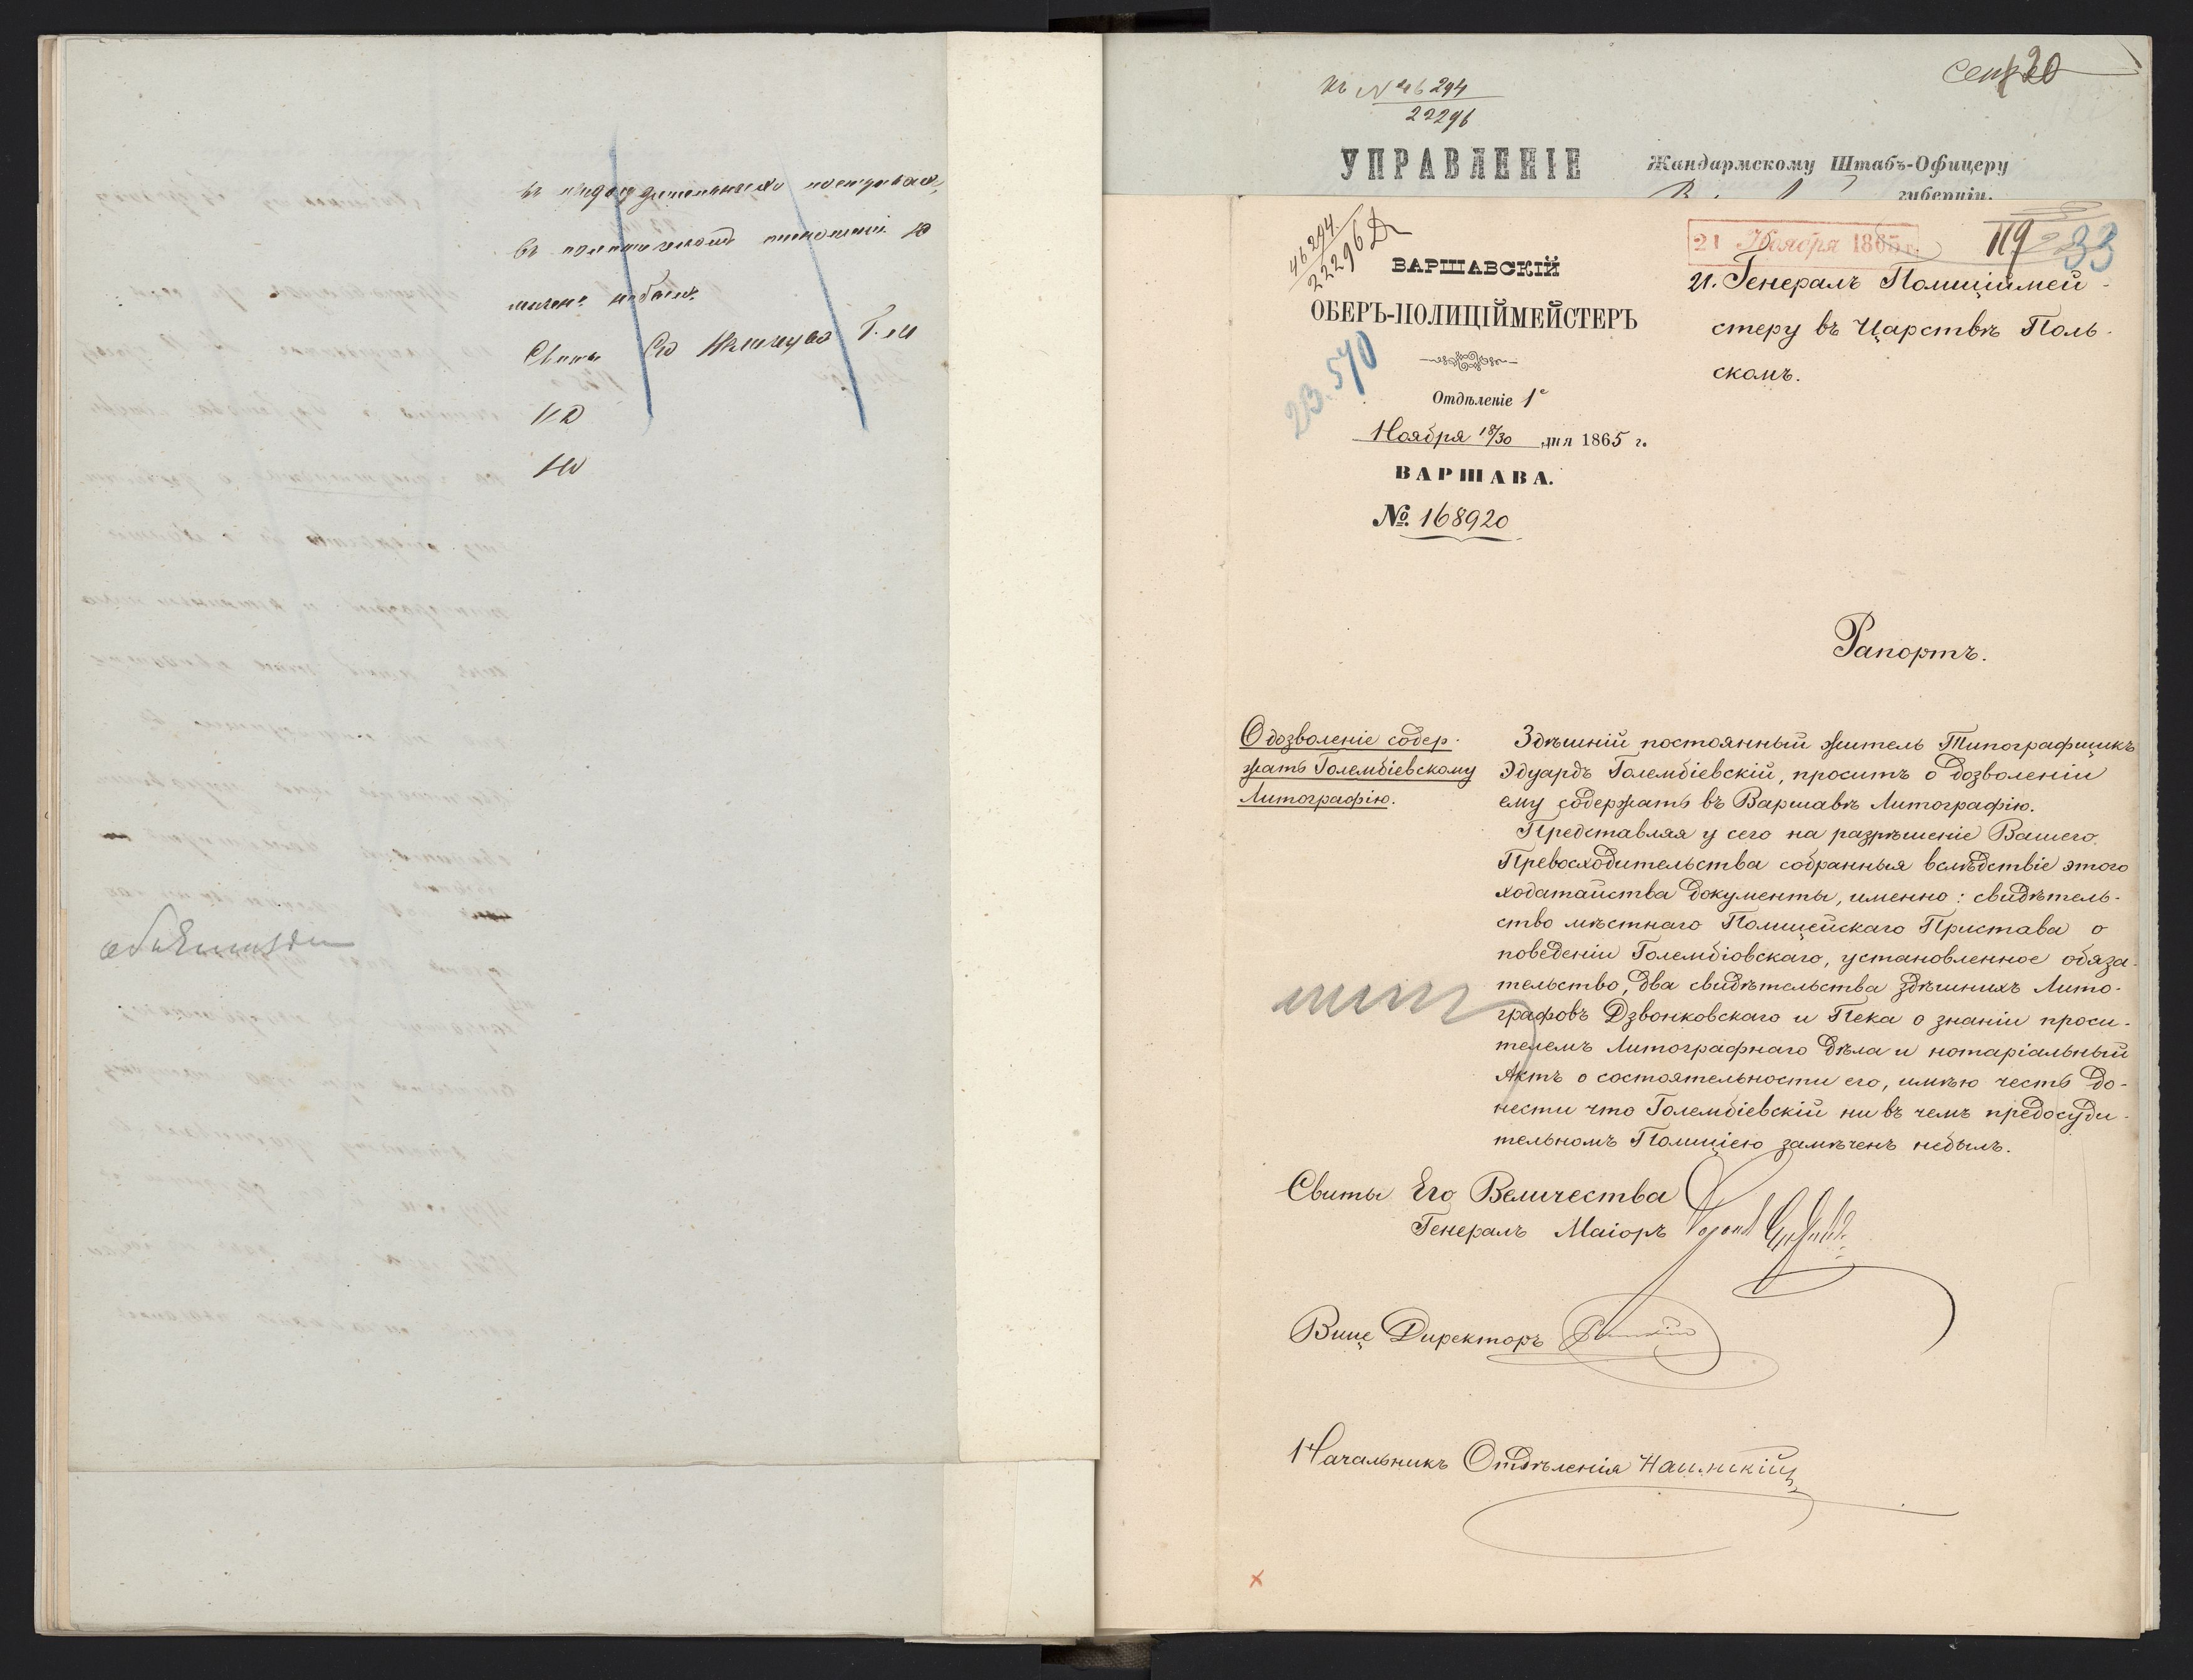 въ политическомъ отношеніи
небылъ.
Свиты Г. М
Къ № 46294
22296
Сент 20
УПРАВЛЕНІЕ
Жандармскому Штабъ-Офицеру
губерніи.
46294.
22296
ВАРШАВСКІЙ
ОБЕРЪ-ПОЛИЦІЙМЕЙСТЕРЪ
23.570
Отдѣленіе 1е
Ноября 18/30 дня 1865 г.
ВАРШАВА.
№. 168920
21 Ноября 1865 г.
119
33
И. Генералъ Полиціймей-
стеру въ Царствѣ Поль-
скомъ.
Рапортъ.
О дозволеніе содер-
жать Голембіевскому
Литографію.
Здѣшній постоянный житель Типографщикъ
Эдуардъ Голембіевскій, проситъ о дозволеніи
ему содержать въ Варшавѣ Литографію.
Представляя у сего на разрѣшеніе Вашего
Превосходительства собранныя вслѣдствіе этого
ходатайства документы, именно: свидѣтель-
ство мѣстнаго Полицейскаго Пристава о
поведеніи Голембіовскаго, установленное обяза-
тельство, два свидѣтельства здѣшнихъ Лито-
графовъ Дзвонковскаго и Пека о знаніи проси-
телемъ Литографнаго дѣла и нотаріальный
Актъ о состоятельности его, имѣю честь до-
нести что Голембіевскій ни въ чемъ предосуди-
тельномъ Полиціею замѣченъ небылъ.
Свиты Его Величества
Генералъ Маіоръ
Вице Директоръ
Начальникъ Отдѣленія